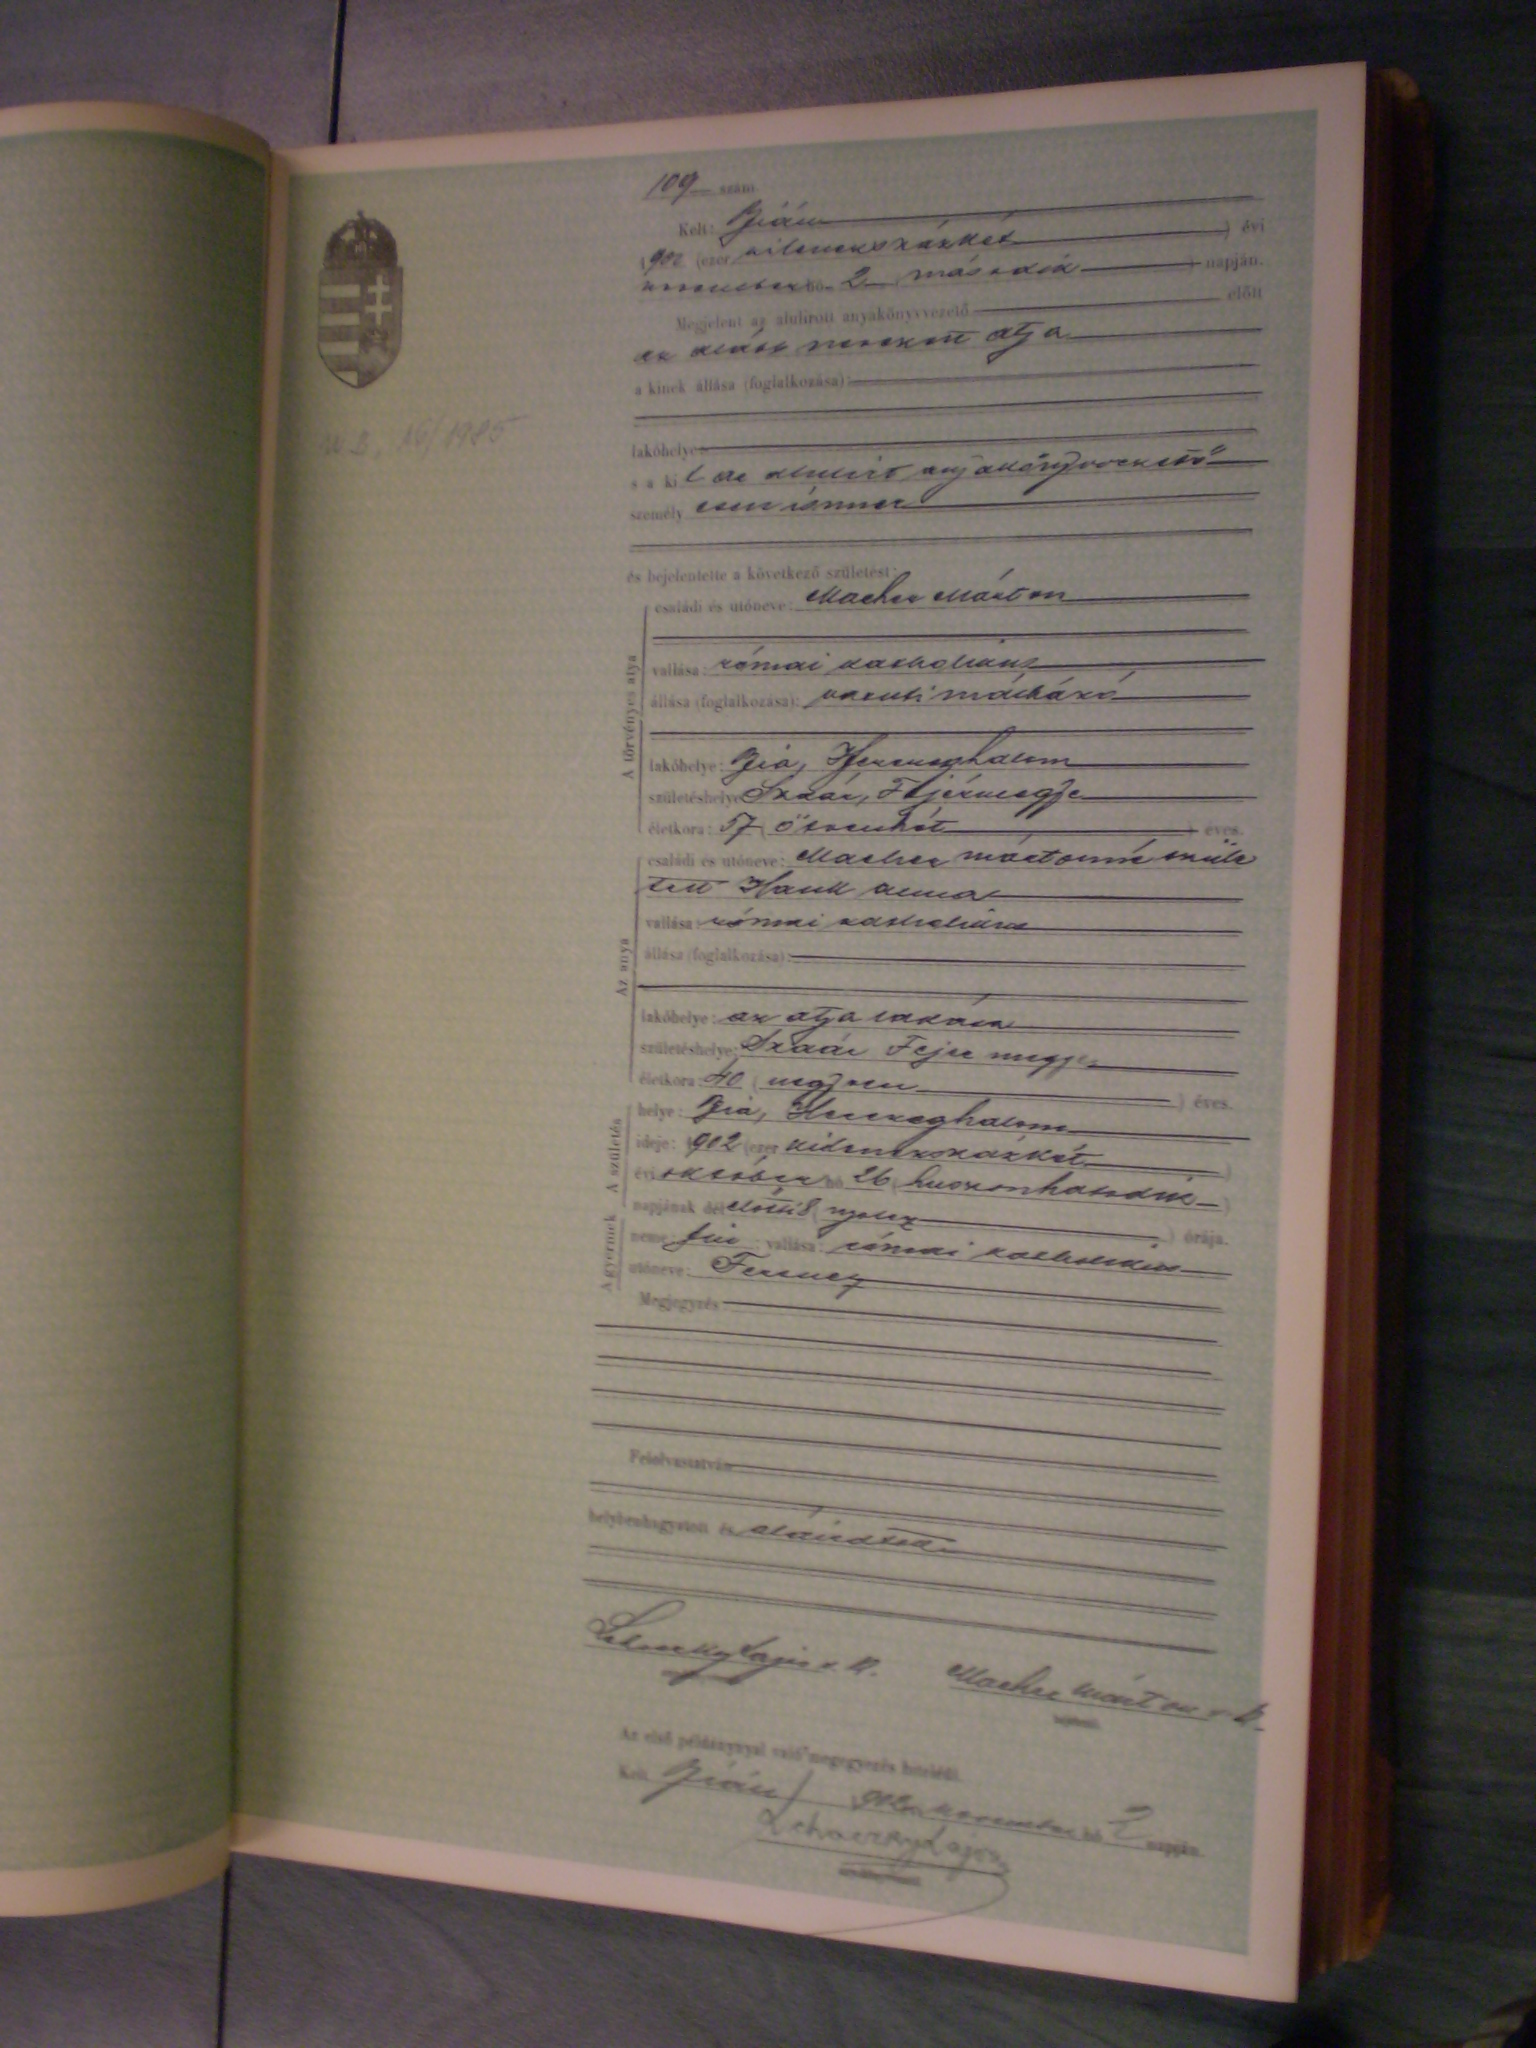 109 szám
Kelt: Bián
1902 (ezer kilencszázkét) évi
november hó 2 (második) napján.
Megjelent az alulirott anyakönyvvezető előtt
az alább nevezett atya
a kinek állása (foglalkozása):
lakóhelye:
s a kit az alulirt anyakönyvvezető
személyesen ismer
és bejelentette a következő születést:
A törvényes atya
családi és utóneve: Macher Márton
vallása: római katholikus
állása (foglalkozása):
lakóhelye: Bia, Herczeghalom
születéshelye: Szaár, Fejérmegye
életkora: 57 (ötvenhét) éves.
Az anya
családi és utóneve: Macher Mártonné szüle
tett Hauk Anna
vallása: római katholikus
állása (foglalkozása):
lakóhelye: az atya lakása
születéshelye: Szaár Fejér megye
életkora: 40 (negyven) éves.
A születés
helye: Bia, Herczeghalom
ideje: 1902 (ezer kilenczszázkét)
évi október hó 26 (huszonhatodik)
napjának délelőtti 8 (nyolcz) órája.
A gyermek
neme: fiú vallása: római katholikus
utóneve: Ferencz
Megjegyzés
Felolvastatván
helybenhagyatott és aláiratott.
Lajos s. k. Macher Márton s. k.
Az első példánynyal való megegyezés hiteléül.
Kelt Bián, 1902 november hó 2 napján.
Lajos